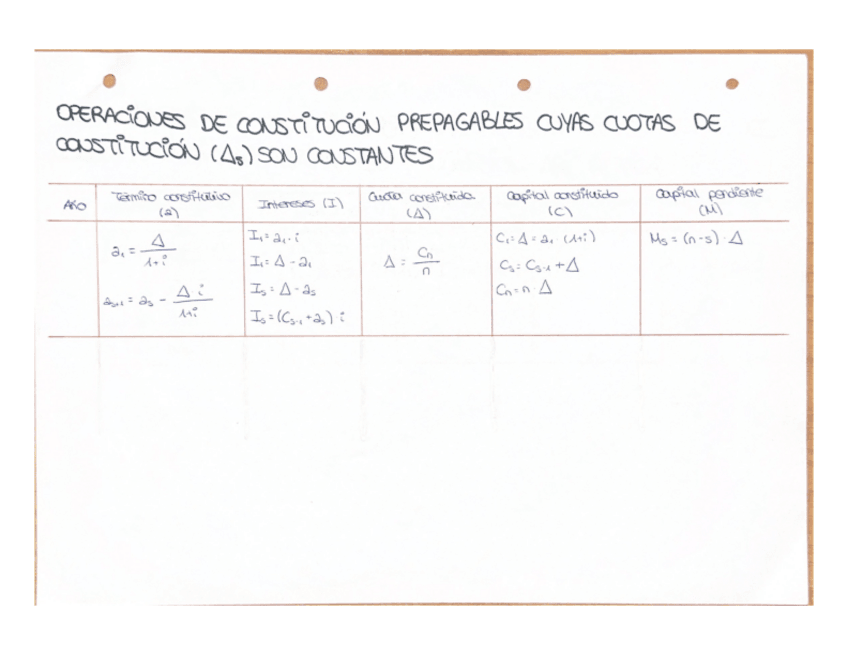 OPERACIONES DE CONSTITUCIÓN PREPAGABLES CUYAS CUOTAS DE
CONSTITUCIÓN (Δs) SON CONSTANTES
Año
Término constitutivo
(a)
Intereses (I)
Cuota constituida
(Δ)
Capital constituido
(C)
Capital pendiente
(M)
a₁ = Δ / 1+i
aₛ₊₁ = aₛ - Δ i / 1+i
I₁ = a₁ · i
I₁ = Δ - a₁
Iₛ = Δ - aₛ
Iₛ = (Cₛ₋₁ + aₛ) i
Δ = Cn / n
C₁ = Δ = a₁ (1+i)
Cₛ = Cₛ₋₁ + Δ
Cn = n · Δ
Mₛ = (n-s) · Δ